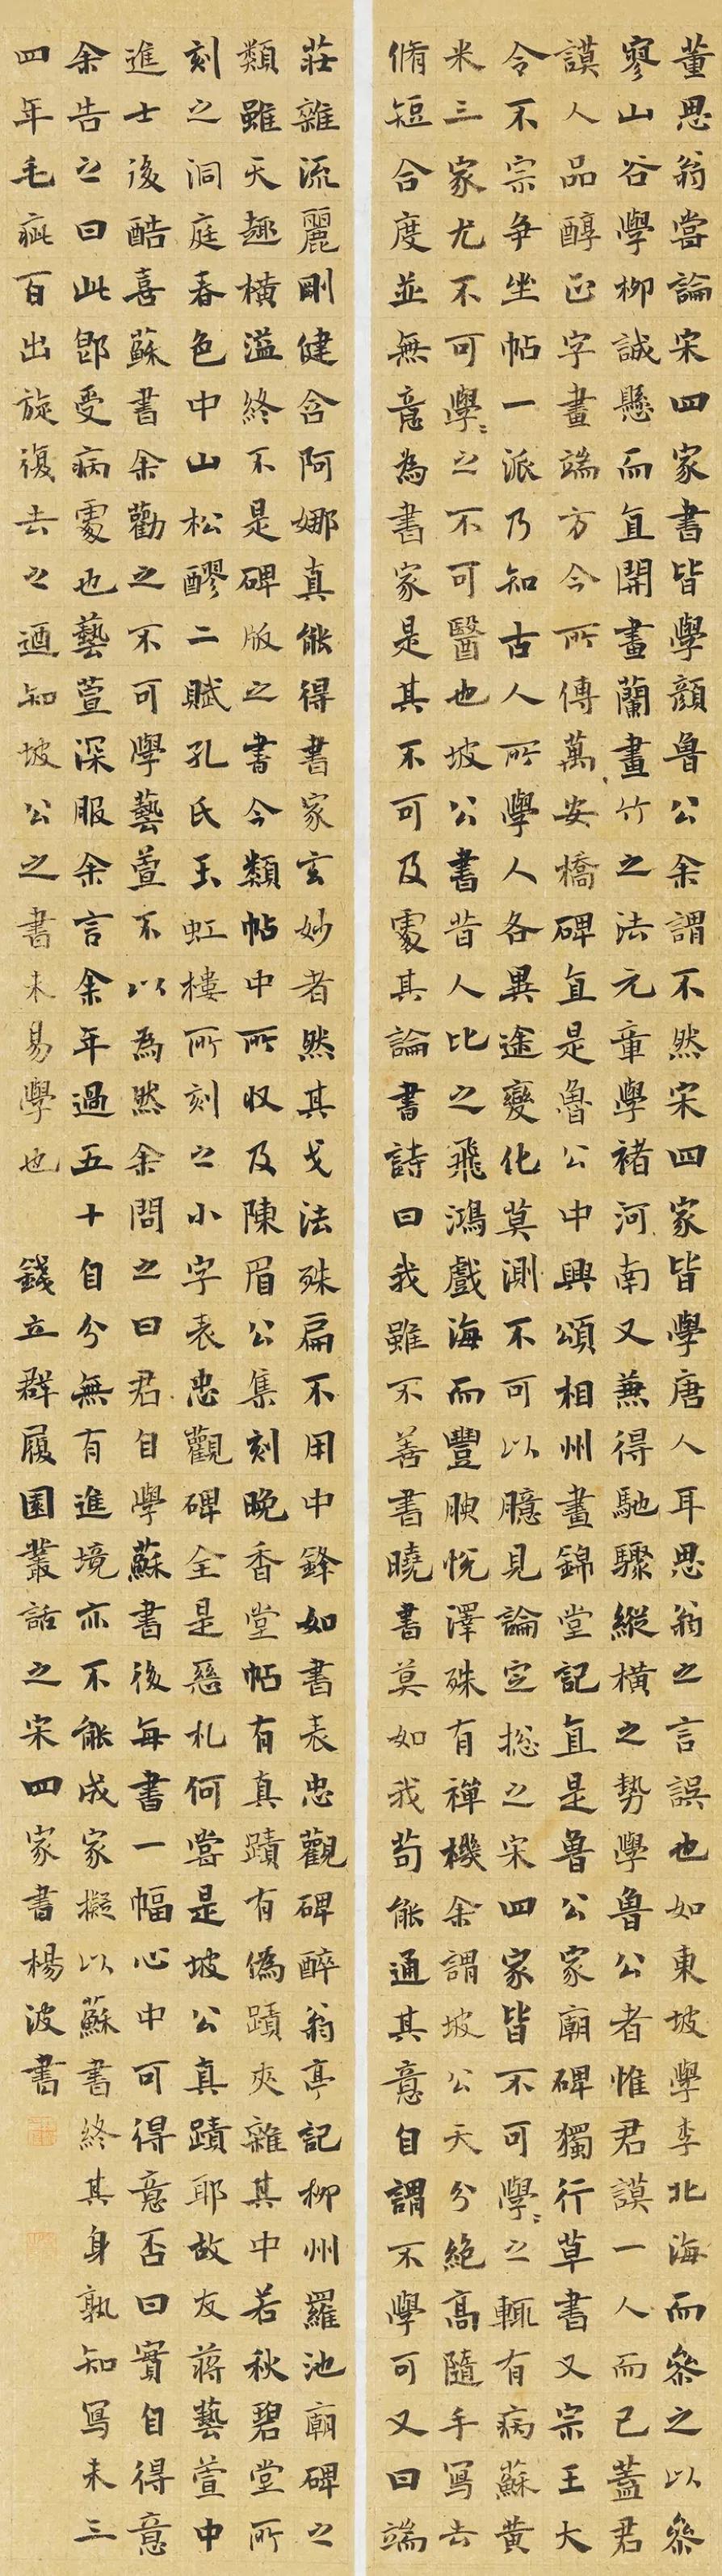 董思翁嘗論宋四家書皆學顏魯公余謂不然宋四家皆學唐人耳思翁之言誤也如東坡學李北海而參之以參
寥山谷學柳誠懸而直開畫蘭畫竹之法元章學褚河南又兼得馳驟縱橫之勢學魯公者惟君謨一人而已蓋君
謨人品醇正字畫端方今所傳萬安橋碑直是魯公中興頌相州畫錦堂記直是魯公家廟碑獨行草書又宗王大
令不宗爭坐帖一派乃知古人所學人各異途變化莫測不可以臆見論定總之宋四家皆不可學〻之輒有病蘇黃
米三家尤不可學〻之不可醫也坡公書昔人比之飛鴻戲海而豐腴悅澤殊有禪機余謂坡公天分絕高隨手寫去
脩短合度並無意為書家是其不可及處其論書詩曰我雖不善書曉書莫如我苟能通其意自謂不學可又曰端
莊雜流麗剛健含阿娜真能得書家玄妙者然其戈法殊扁不用中鋒如書表忠觀碑醉翁亭記柳州羅池廟碑之
類雖天趣橫溢終不是碑版之書今類帖中所收及陳眉公集刻晚香堂帖有真蹟有偽蹟夾雜其中若秋碧堂所
刻之洞庭春色中山松醪二賦孔氏玉虹樓所刻之小字表忠觀碑全是惡札何嘗是坡公真蹟耶故友蔣藝萱中
進士後酷喜蘇書余勸之不可學藝萱不以為然余問之曰君自學蘇書後每書一幅心中可得意否曰實自得意
余告之曰此即受病處也藝萱深服余言余年過五十自分無有進境亦不能成家擬以蘇書終其身孰知寫未三
四年毛疵百出旋復去之迺知坡公之書未易學也 錢立群履園叢話之宋四家書楊波書